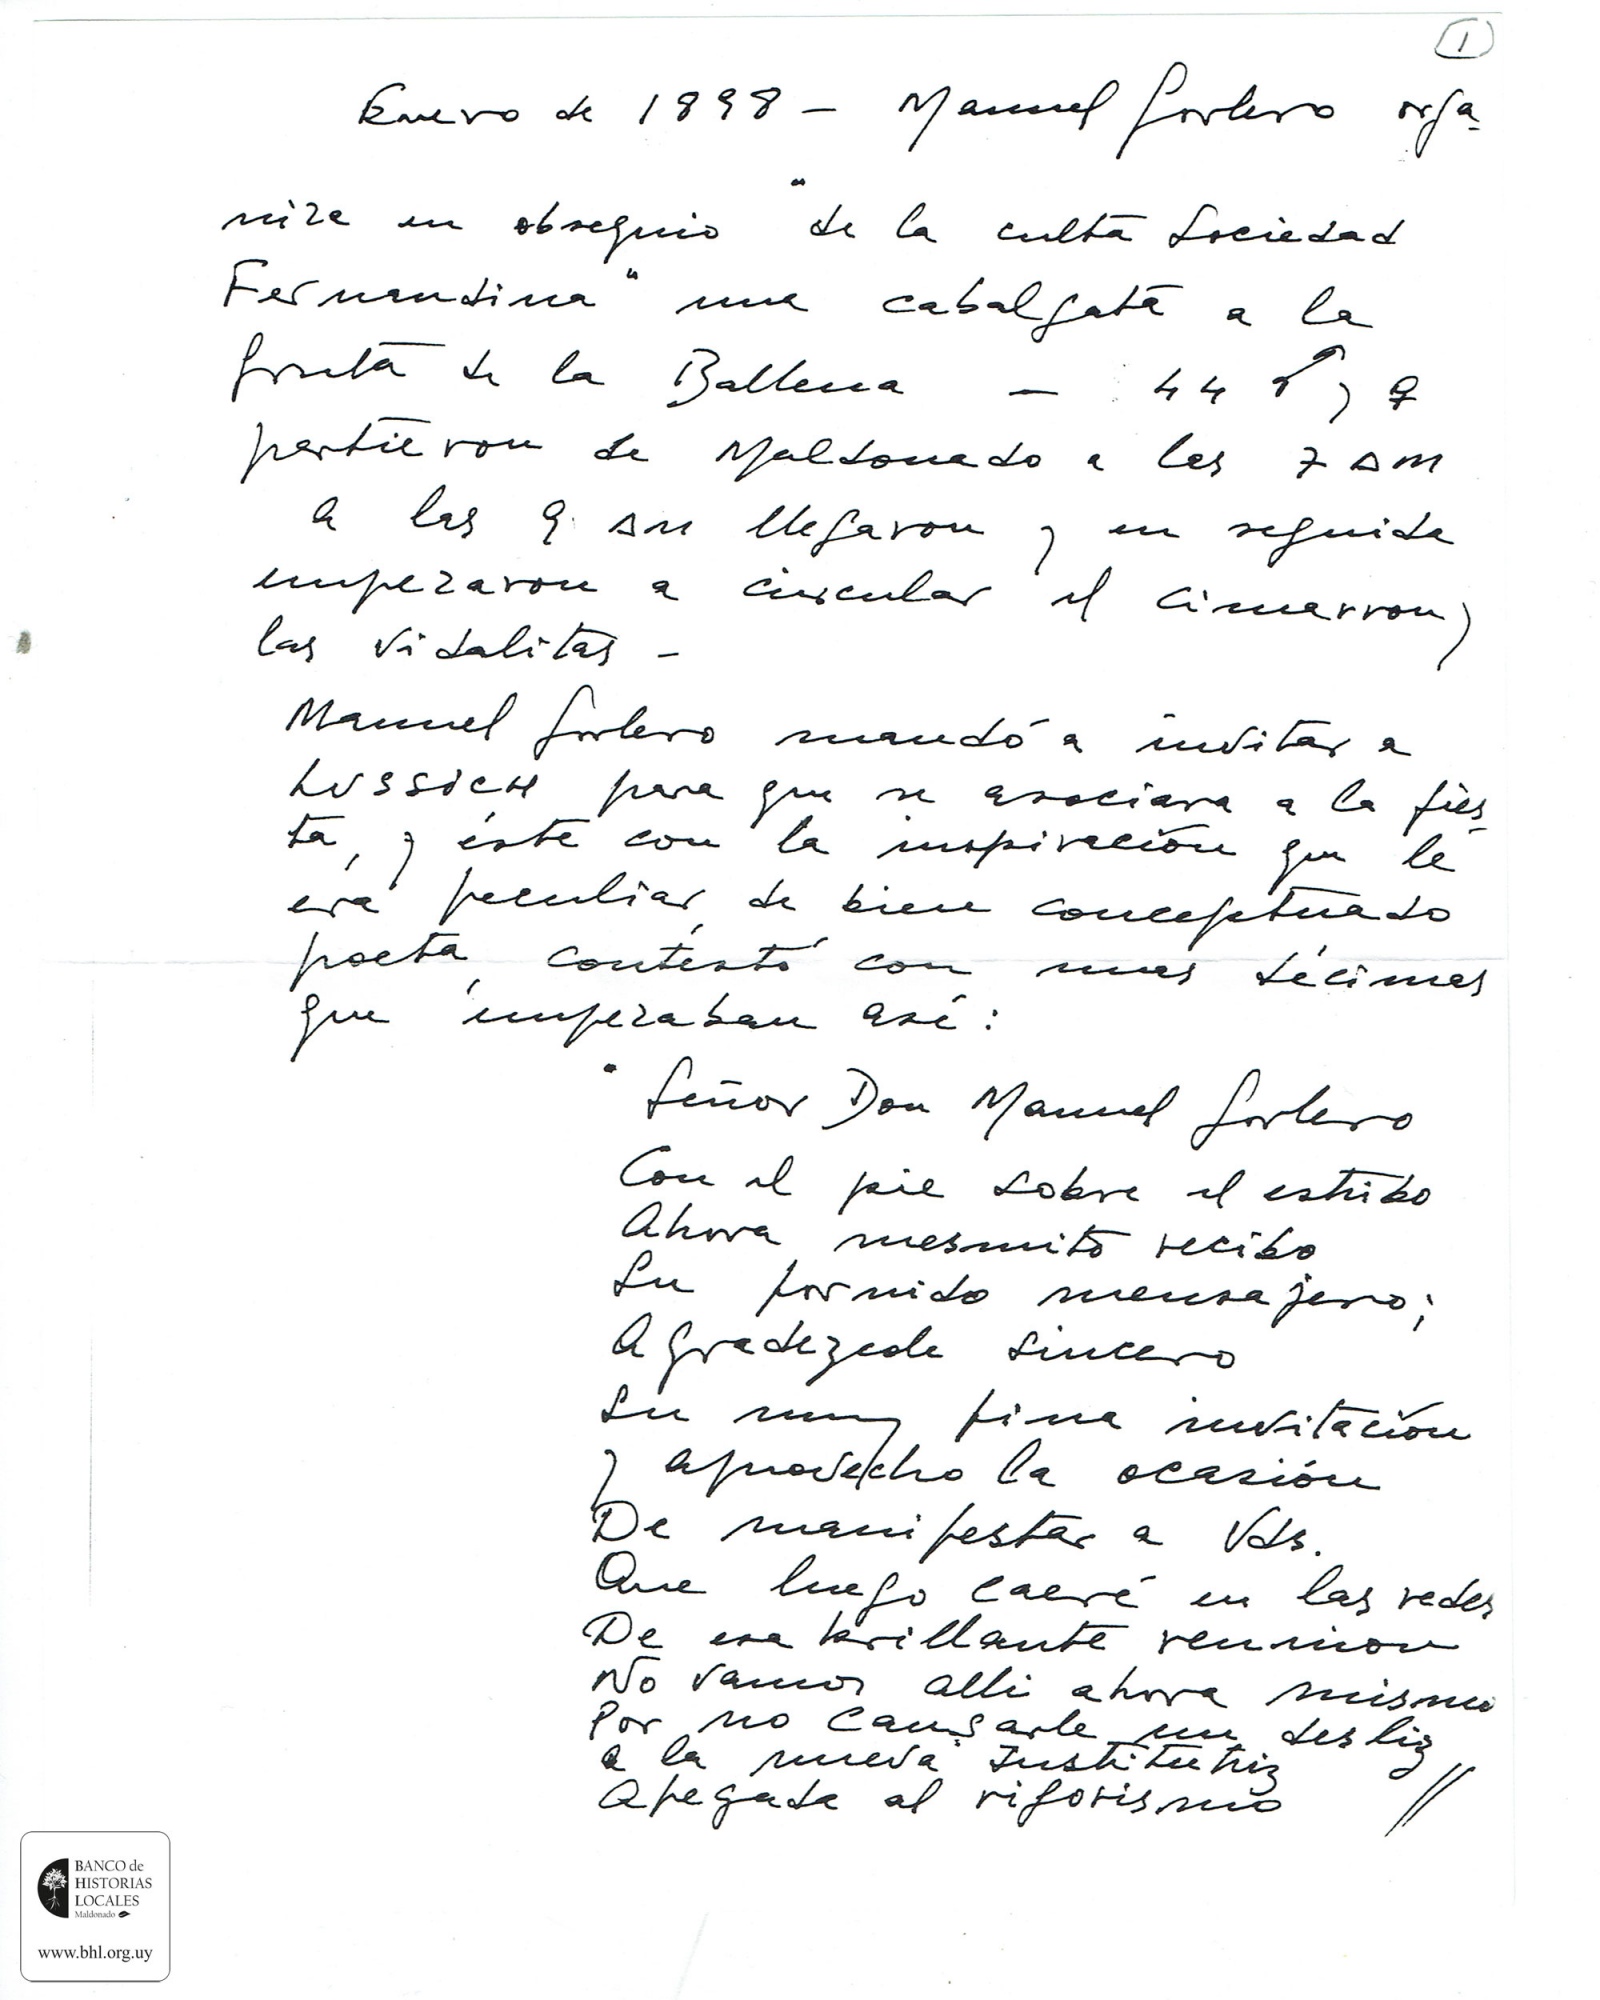 1
Enero de 1898 - Manuel Gorlero orga-
niza en obsequio "de la culta Sociedad
Fernandina" una cabalgata a la
gruta de la Ballena - 44 ♂ y ♀
partieron de Maldonado a las 7 AM
a las 9 AM llegaron y en seguida
empezaron a circular el cimarron y
las vidalitas -
Manuel Gorlero mandó a invitar a
LUSSICH para que se asociara a la fies-
ta, y éste con la inspiración que le
era peculiar, de bien conceptuado
poeta, contestó con unas décimas
que empezaban así:
" Señor Don Manuel Gorlero
Con el pie sobre el estribo
Ahora mesmito recibo
Su fornido mensajero;
Agradezcole sincero
Su muy fina invitación
y aprovecho la ocasión
De manifestar a Vds.
Que luego caeré en las redes
De esa brillante reunion
No vamos alli ahora mismo
Por no causarle un desliz
a la nueva Institutriz
Apegada al rigorismo //
BANCO de
HISTORIAS
LOCALES
Maldonado
www.bhl.org.uy